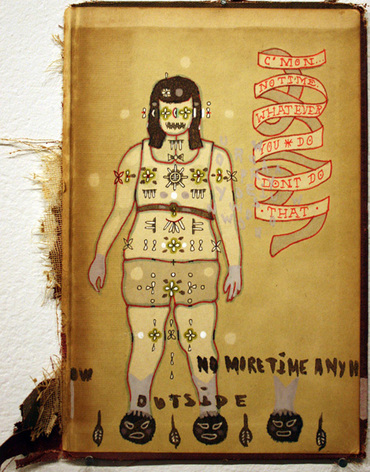 C'MON...
NO TIME.
WHATEVER
YOU DO
DONT DO
THAT.
NO MORE TIME ANYH
OW
OUTSIDE